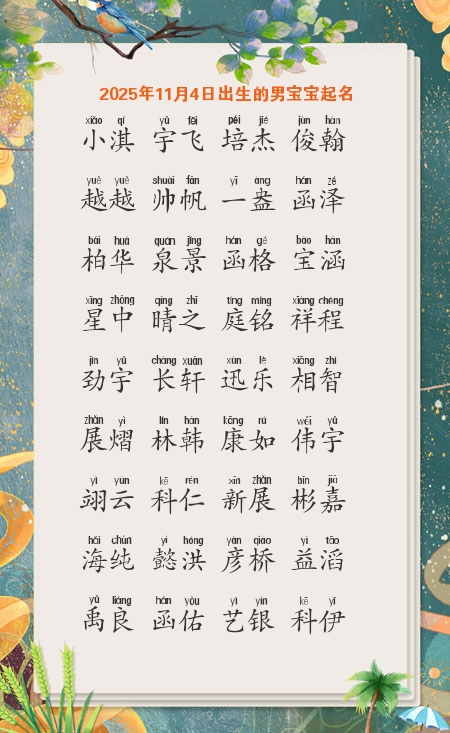 2025年11月4日出生的男宝宝起名
xiǎo qí yǔ fēi péi jié jùn hàn
小淇 宇飞 培杰 俊翰
yuè yuè shuài fān yī àng hán zé
越越 帅帆 一盎 函泽
bǎi huá quán jǐng hán gé bǎo hán
柏华 泉景 函格 宝涵
xīng zhōng qíng zhī tíng míng xiáng chéng
星中 晴之 庭铭 祥程
jìn yǔ cháng xuān xùn lè xiāng zhì
劲宇 长轩 迅乐 相智
zhǎn yì lín hán kāng rú wěi yǔ
展熠 林韩 康如 伟宇
yì yún kē rén xīn zhǎn bīn jiā
翊云 科仁 新展 彬嘉
hǎi chún yì hóng yàn qiáo yì tāo
海纯 懿洪 彦桥 益滔
yǔ liáng hán yòu yì yín kē yī
禹良 函佑 艺银 科伊